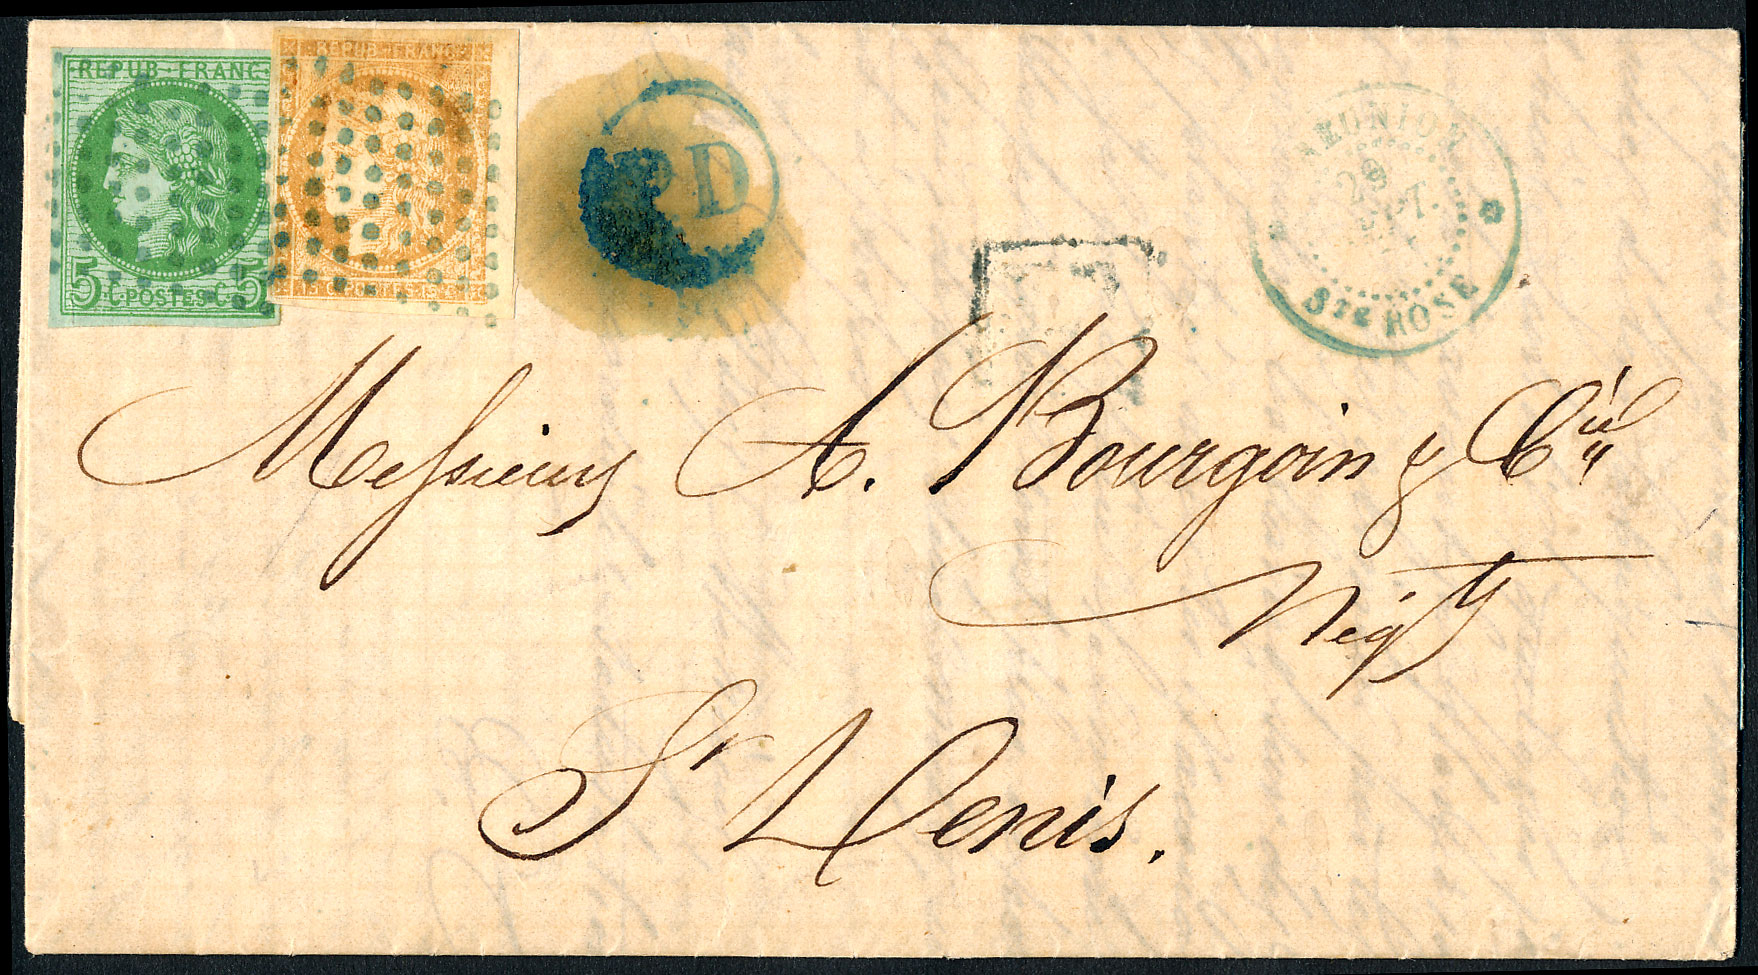 REPUB FRANC
5 C. POSTES C. 5
REPUB FRANC
15 C. POSTES 15 C
PD
REUNION
STE ROSE
Messieurs A. Bourgoin & Cie
Négt
St Denis.